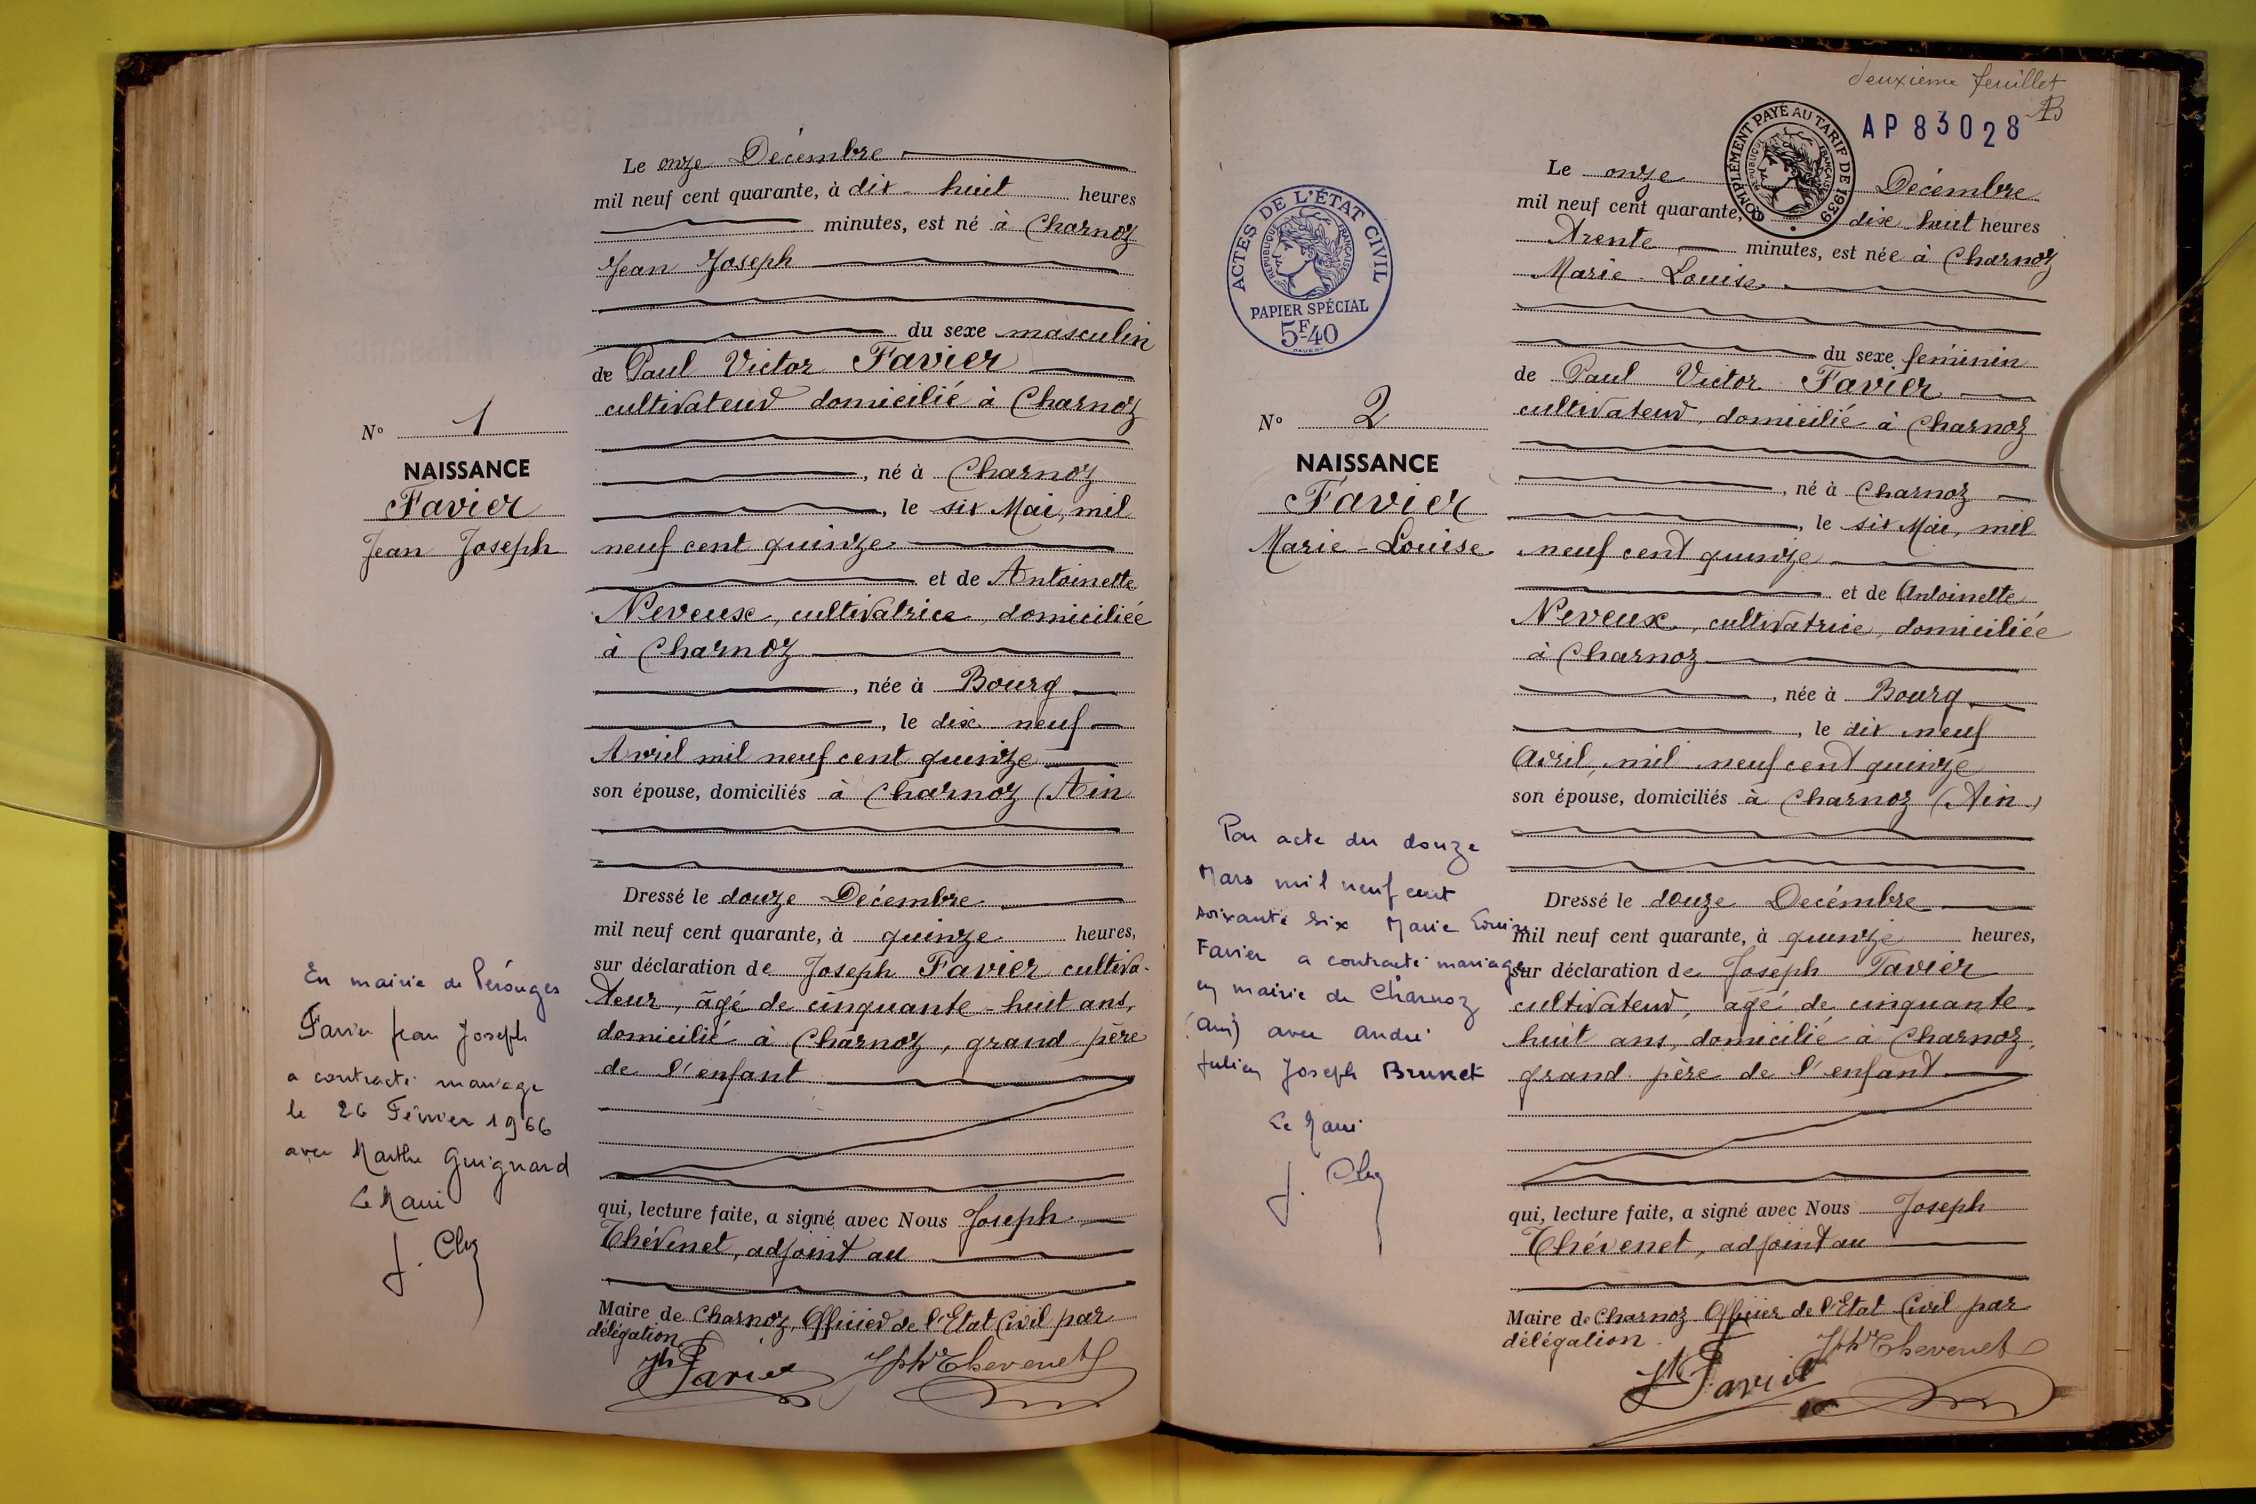 Le onze Décembre
mil neuf cent quarante, à dix huit heures
minutes, est né à Charnoz
Jean Joseph
du sexe masculin
de Paul Victor Favier
cultivateur domicilié à Charnoz
, né à Charnoz
, le six Mai, mil
neuf cent quinze
et de Antoinette
Neveux, cultivatrice, domiciliée
à Charnoz
, née à Bourg
, le dix neuf
Avril mil neuf cent quinze
son épouse, domiciliés à Charnoz (Ain
Dressé le douze Décembre
mil neuf cent quarante, à quinze heures,
sur déclaration de Joseph Favier cultiva-
teur, âgé de cinquante-huit ans,
domicilié à Charnoz, grand père
de l'enfant
qui, lecture faite, a signé avec Nous Joseph
Thévenet, adjoint au
Maire de Charnoz, Officier de l'Etat Civil par
délégation
Jh Favier Jph Thevenet
N° 1
NAISSANCE
Favier
Jean Joseph
En mairie de Pérouges
Favier Jean Joseph
a contracté mariage
le 26 Février 1966
avec Marthe Guignard
Le Maire
J. Cloz
deuxième feuillet
AP83028
COMPLÉMENT PAYÉ AU TARIF DE 1939
RÉPUBLIQUE FRANÇAISE
ACTES DE L'ÉTAT CIVIL
RÉPUBLIQUE FRANÇAISE
PAPIER SPÉCIAL
5F40
Le onze Décembre
mil neuf cent quarante, dix huit heures
trente minutes, est née à Charnoz
Marie-Louise
du sexe féminin
de Paul Victor Favier
cultivateur, domicilié à Charnoz
, né à Charnoz
, le six Mai, mil
neuf cent quinze
et de Antoinette
Neveux, cultivatrice, domiciliée
à Charnoz
, née à Bourg
, le dix neuf
Avril, mil neuf cent quinze
son épouse, domiciliés à Charnoz (Ain)
Dressé le douze Décembre
mil neuf cent quarante, à quinze heures,
sur déclaration de Joseph Favier
cultivateur, âgé de cinquante-
huit ans, domicilié à Charnoz,
grand père de l'enfant
qui, lecture faite, a signé avec Nous Joseph
Thévenet, adjoint au
Maire de Charnoz Officier de l'Etat Civil par
délégation.
Jh Favier Jph Thevenet
N° 2
NAISSANCE
Favier
Marie-Louise
Par acte du douze
Mars mil neuf cent
soixante six Marie Louise
Favier a contracté mariage
en mairie de Charnoz
(Ain) avec André
Julien Joseph Brunet
Le Maire
J. Cloz